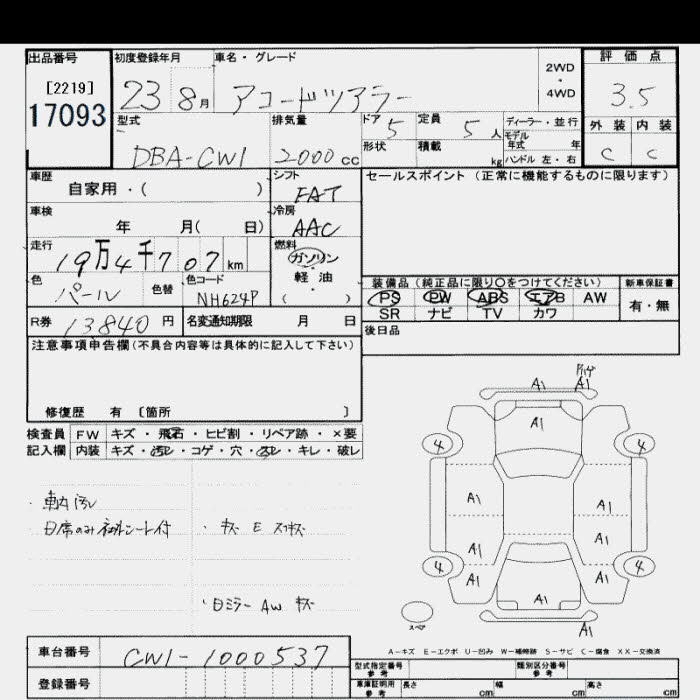 出品番号 初度登録年月 車名・グレード 2WD・4WD 評価点
[2219]
17093 23 8月 アコードツアラー 3.5
型式 排気量 ドア 5 定員 5人 ディーラー・並行 外装 内装
DBA-CW1 2000cc 形状 積載 kg モデル年式 年 C C
ハンドル 左・右
車歴 シフト セールスポイント (正常に機能するものに限ります)
自家用・( ) FAT
車検 冷房
年 月( 日) AAC
走行 燃料
19万4千707km ガソリン・軽油
色 色替 色コード ( ) 装備品 (純正品に限り○をつけてください) 新車保証書
パール NH624P PS PW ABS エアB AW 有・無
SR ナビ TV カワ
R券 13840円 名変通知期限 月 日 後日品
注意事項申告欄(不具合内容等は具体的に記入して下さい)
修復歴 有 [箇所 ]
検査員 FW キズ・飛石・ヒビ割・リペア跡・×要
記入欄 内装 キズ・汚レ・コゲ・穴・スレ・キレ・破レ
・車内汚レ
・キズ E
・日ミラー AW キズ
A1 A1
A1
4 4
A1 A1
A1 A1
4 4
A1 A1
A1
スペア A1
A-キズ E-エクボ U-凹み W-補修跡 S-サビ C-腐食 XX-交換済
車台番号 CW1-1000537
登録番号
型式指定番号 参考 類別区分番号 参考
車庫証明用 参考 長さ cm 幅 cm 高さ cm